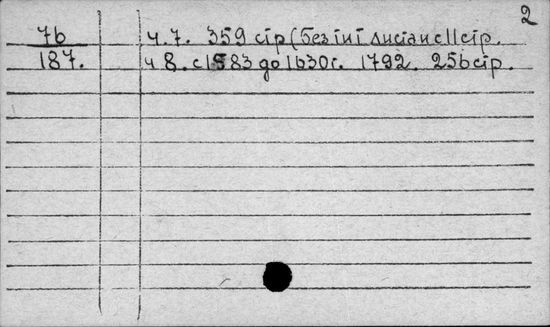 2
7b ч. 7. 359 стр (без тит листа и с 11 стр.
187. ч 8. с 1583 до 1630 г. 1792. 256 стр.